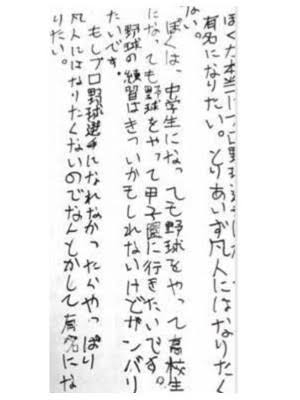 ぼくが本当にプロ野球選手に
有名になりたい。とりあいず凡人にはなりたく
ない。
ぼくは、中学生になっても野球をやって高校生
になっても野球をやって甲子園に行きたいです。
野球の練習はきついかもしれないけどガンバリ
たいです。
もしプロ野球選手になれなかったらやっぱり
凡人にはなりたくないのでなんとかして有名にな
りたい。